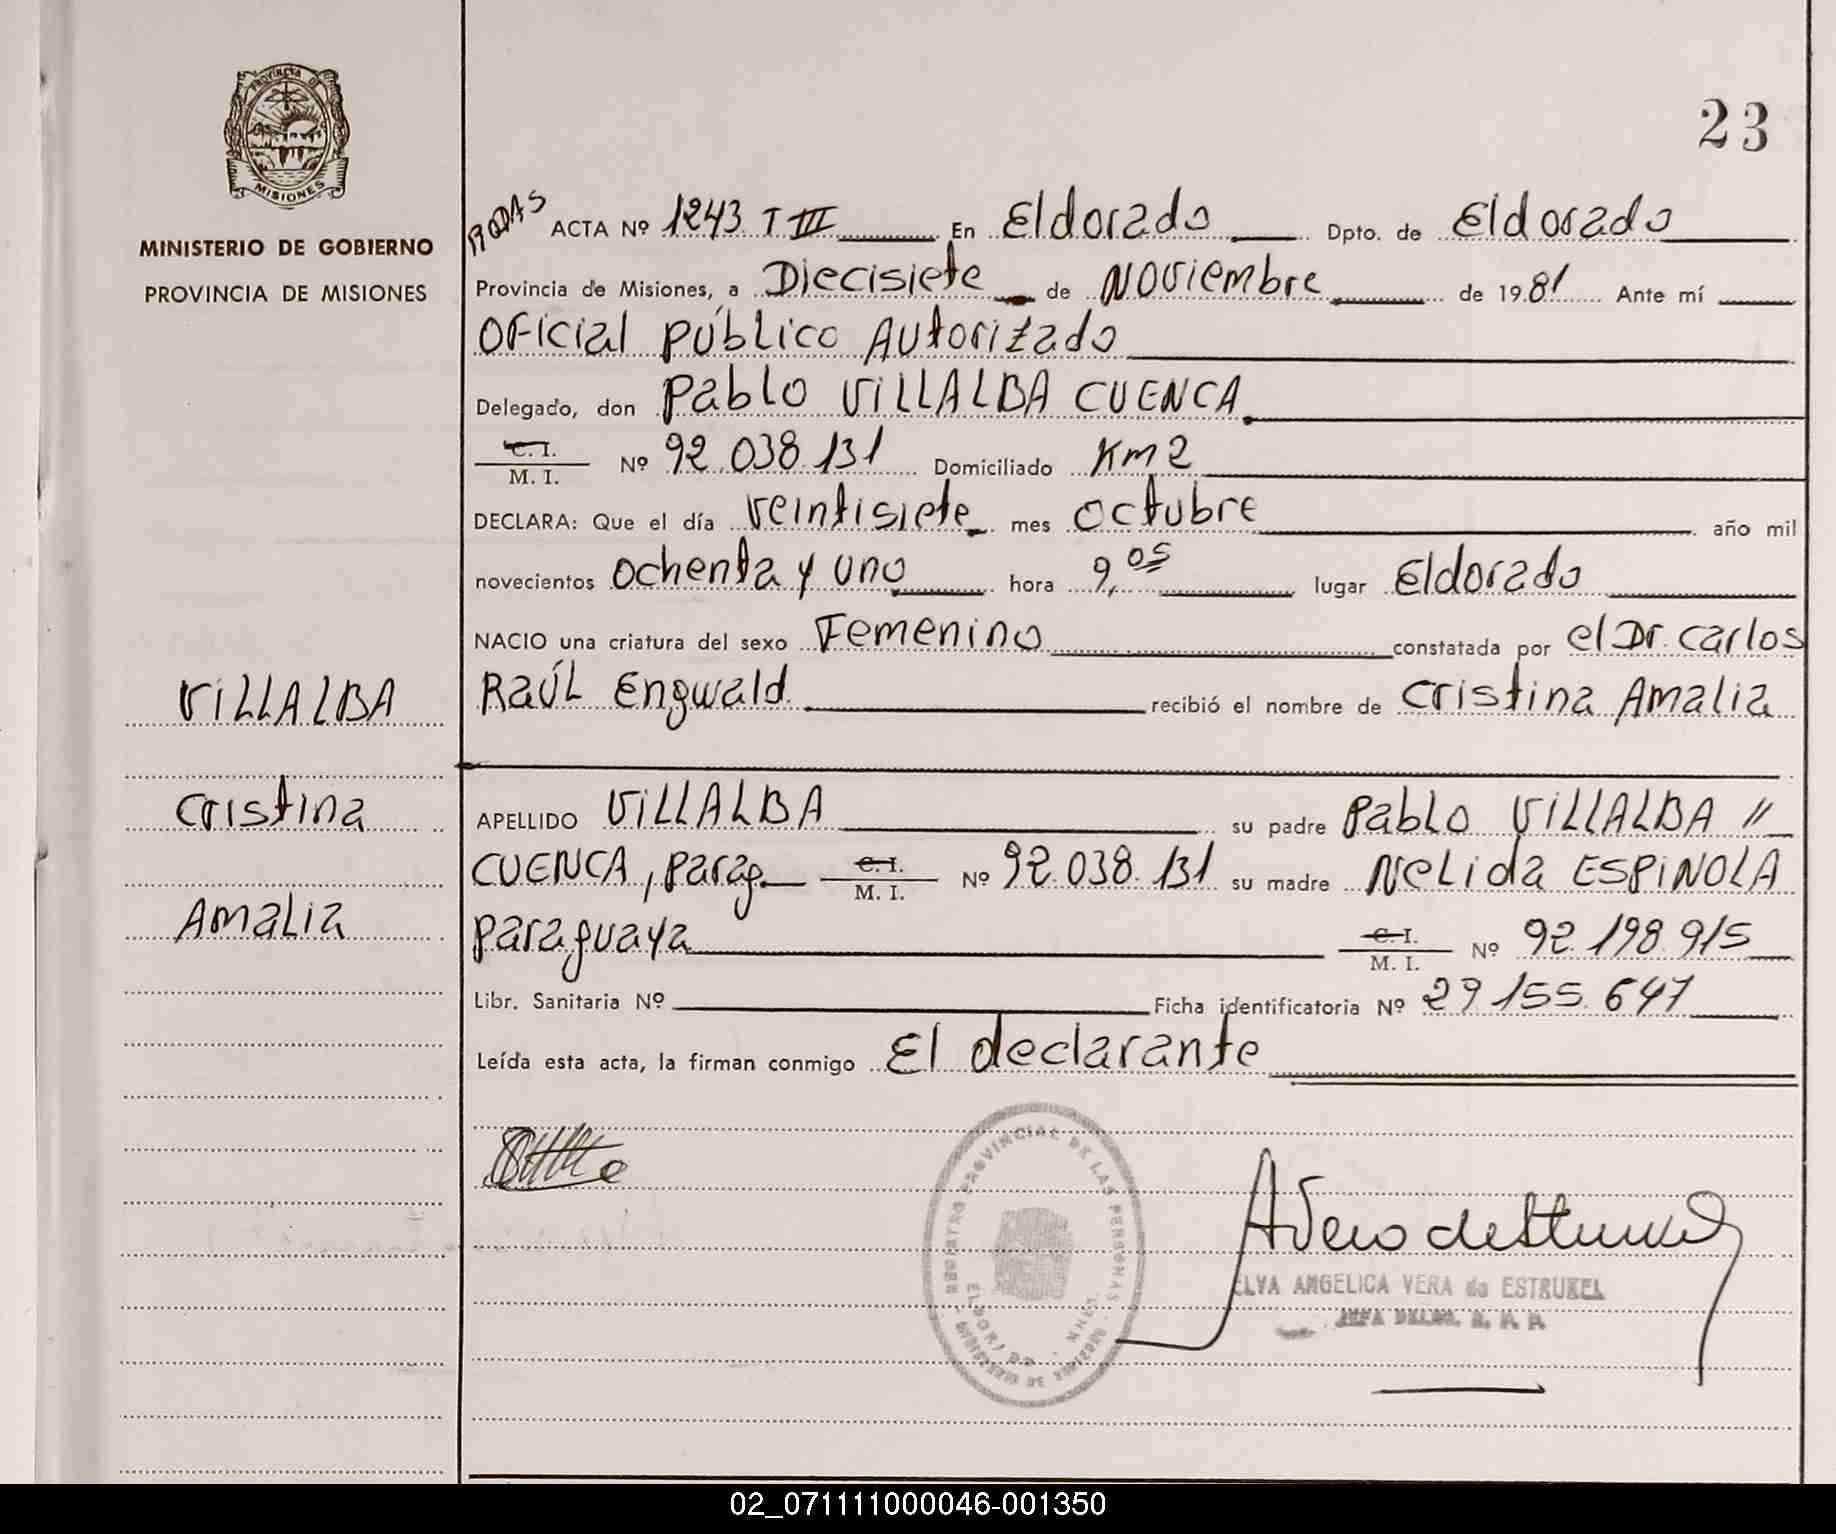 23
PROVINCIA DE
MISIONES
MINISTERIO DE GOBIERNO
PROVINCIA DE MISIONES
RODAS ACTA Nº 1243 T III En Eldorado Dpto. de Eldorado
Provincia de Misiones, a Diecisiete de Noviembre de 1981 Ante mí
Oficial Público Autorizado
Delegado, don Pablo VILLALBA CUENCA
C. I.
M. I. Nº 92.038.131 Domiciliado Km 2
DECLARA: Que el día veintisiete mes octubre año mil
novecientos ochenta y uno hora 9,05 lugar Eldorado
NACIO una criatura del sexo Femenino constatada por el Dr. Carlos
Raúl Engwald. recibió el nombre de Cristina Amalia
VILLALBA
Cristina
Amalia
APELLIDO VILLALBA su padre Pablo VILLALBA //
CUENCA, Parag. C. I. M. I. Nº 92.038.131 su madre Nelida ESPINOLA
paraguaya C. I. M. I. Nº 92.198.915
Libr. Sanitaria Nº Ficha identificatoria Nº 29.155.647
Leída esta acta, la firman conmigo El declarante
REGISTRO PROVINCIAL DE LAS PERSONAS
ELDORADO MNES.
A Vera de Estrukel
ELVA ANGELICA VERA de ESTRUKEL
JEFA DELEG. R. P. P.
02_071111000046-001350